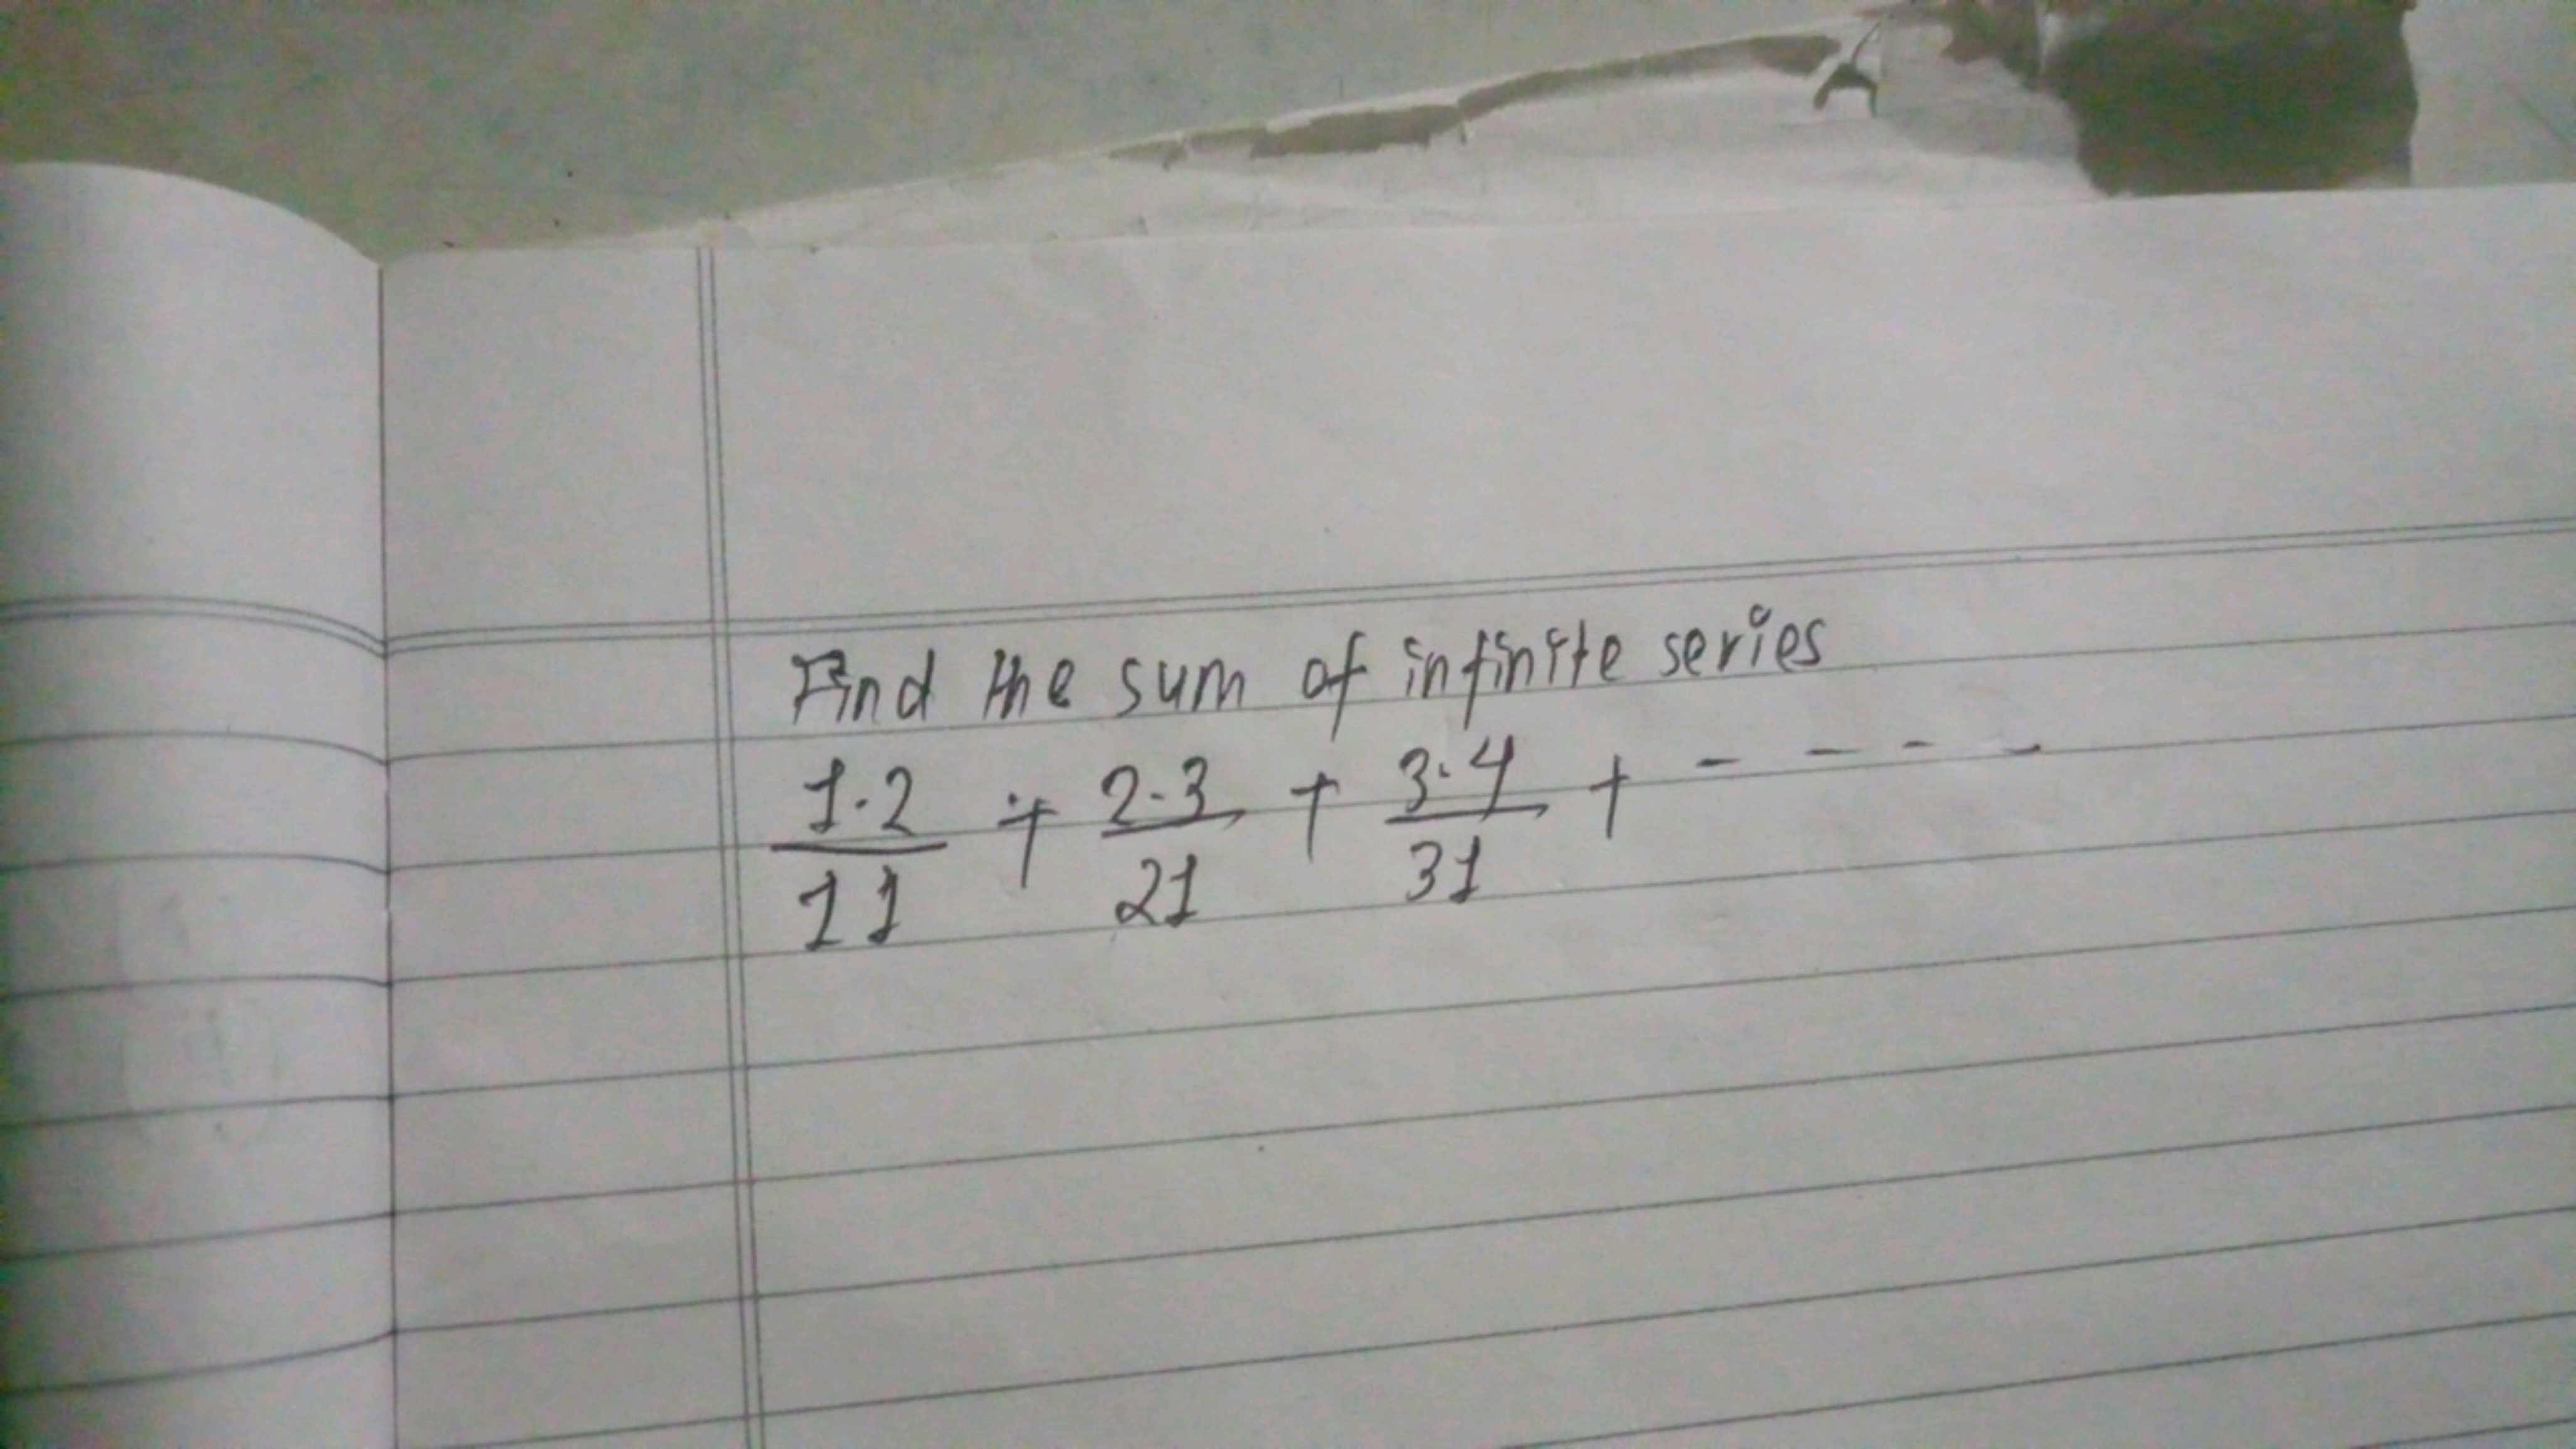 Find the sum of infinite series
1.2/11 + 2.3/21 + 3.4/31 + - - - -